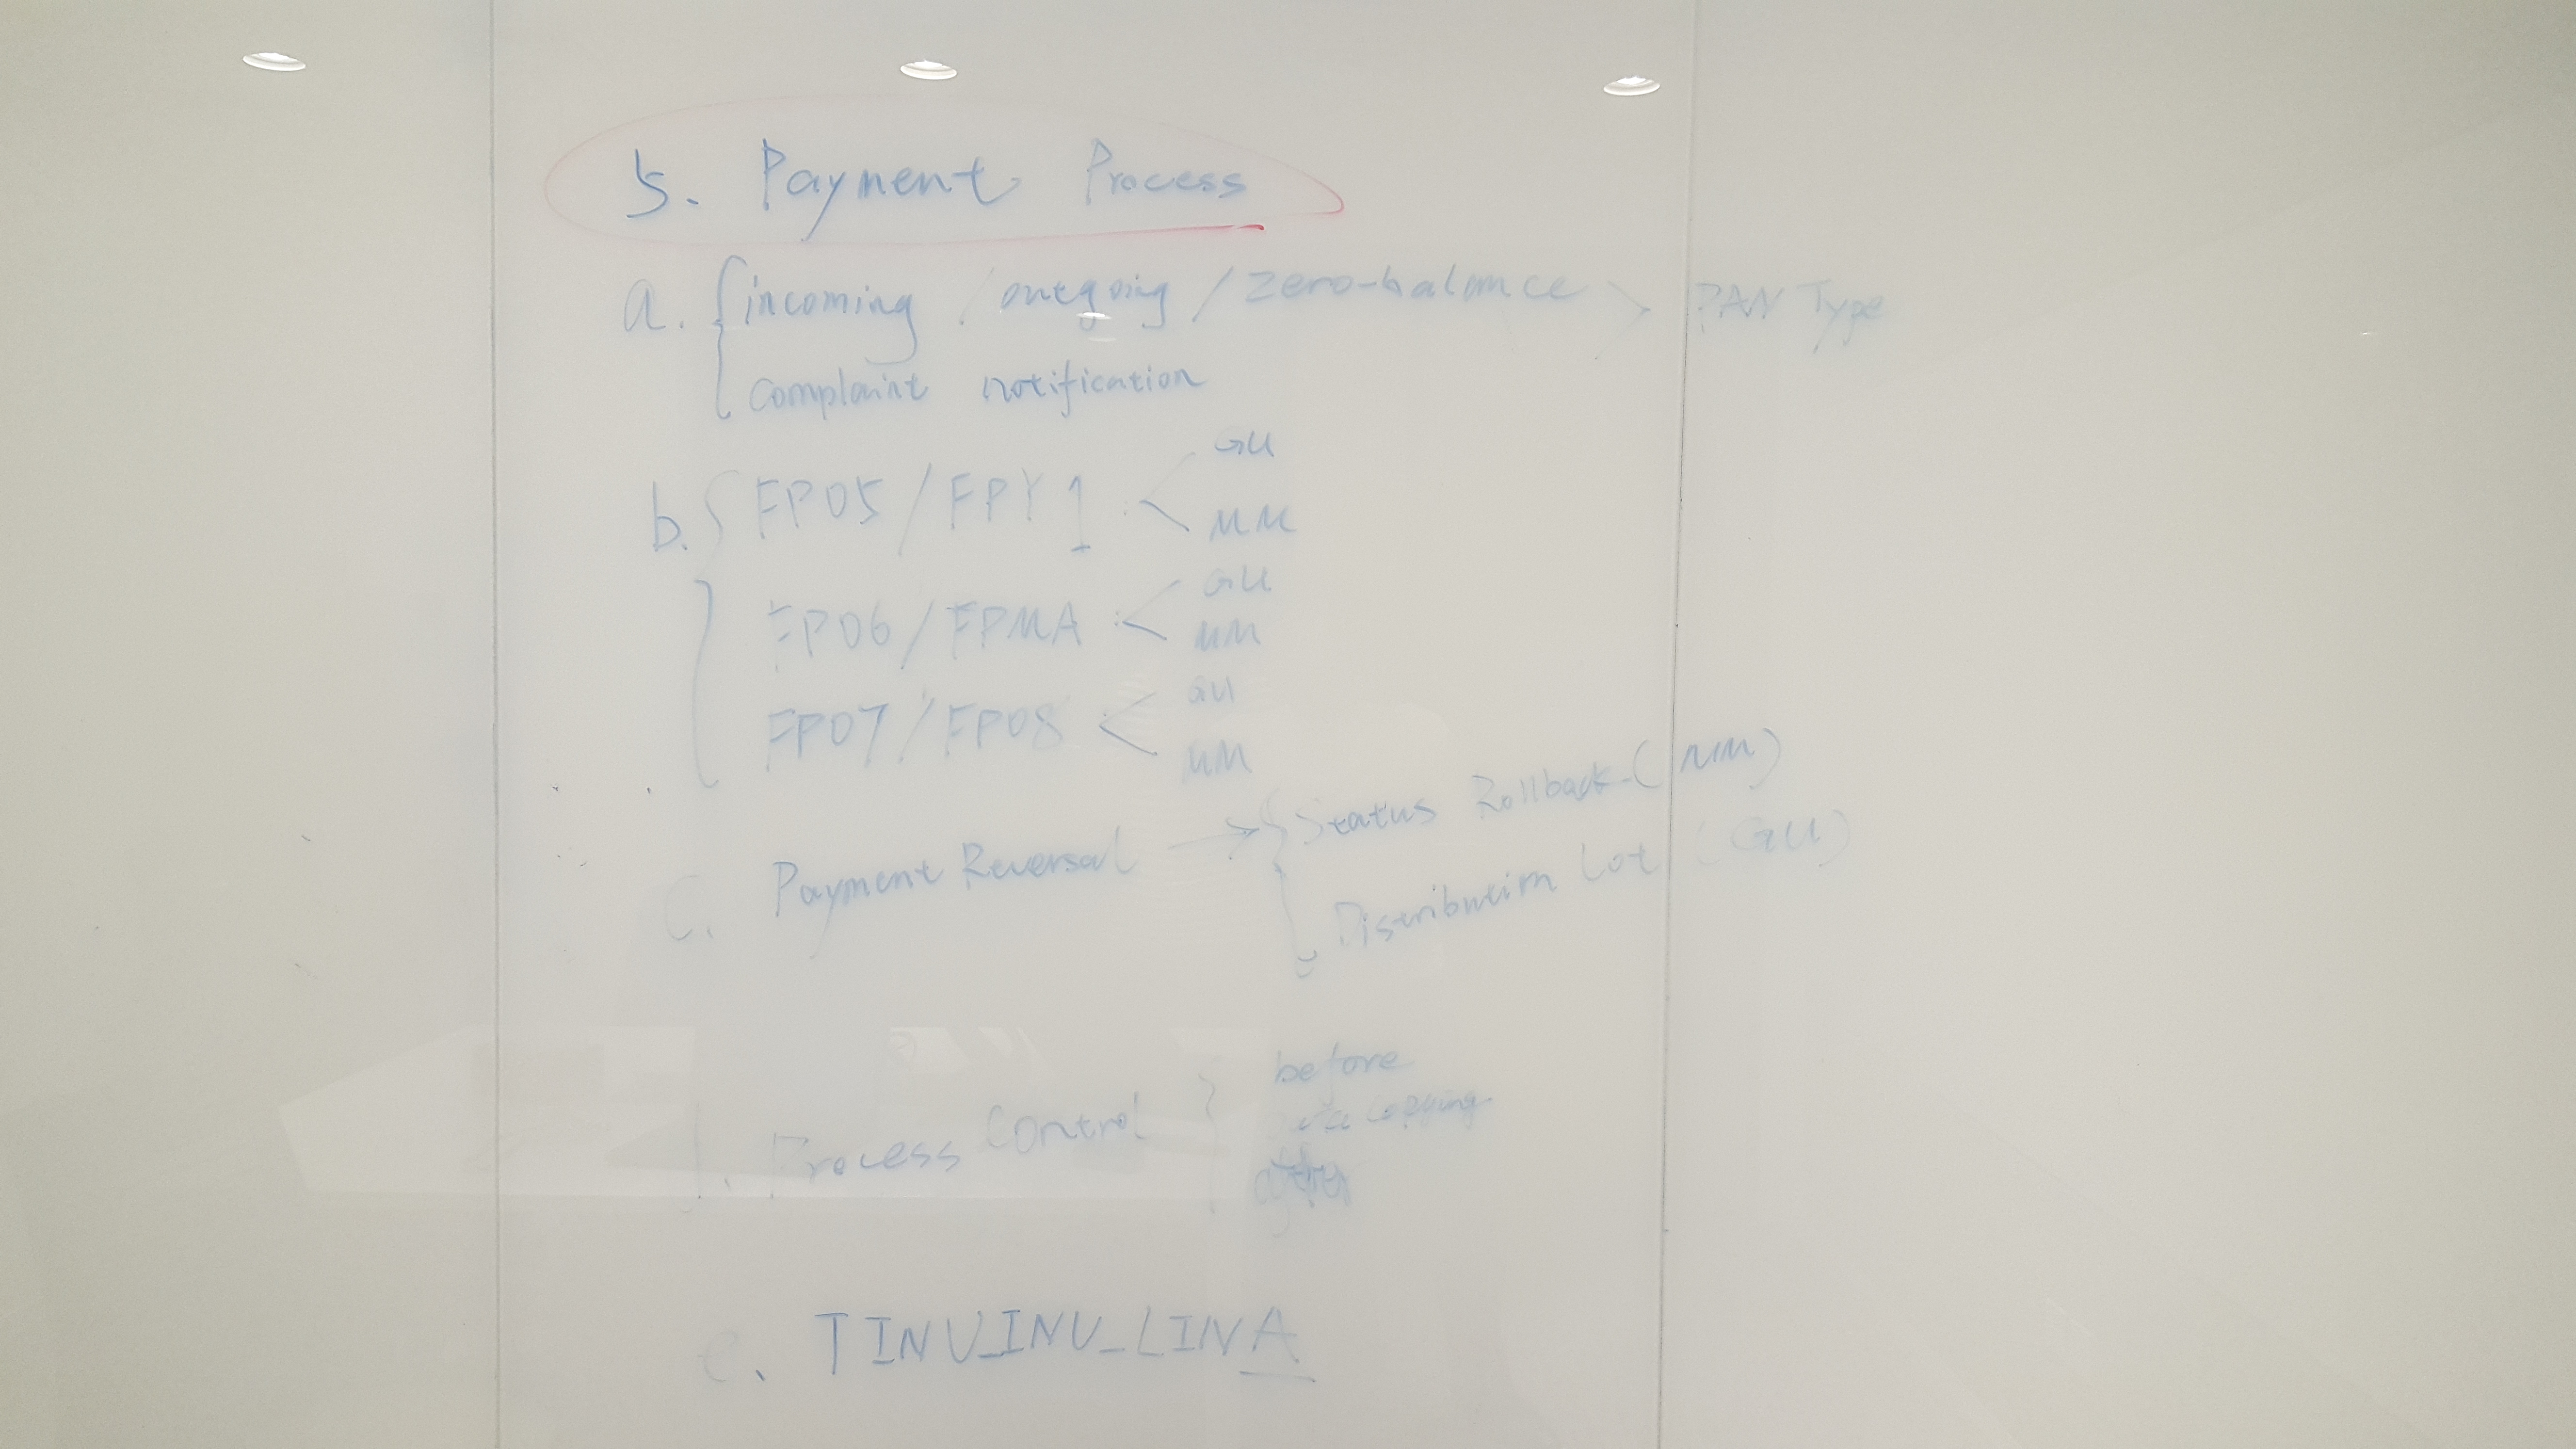 5. Payment Process
a. { incoming / outgoing / zero-balance > PAN Type
complaint notification
b. { FP05 / FPY1 < GU
MM
FP06 / FPMA < GU
MM
FP07 / FP08 < GU
MM
C. Payment Reversal → { Status Rollback (MM)
Distribution Lot (GU)
Process Control } before
copying
after
e. TINV_INV_LINA